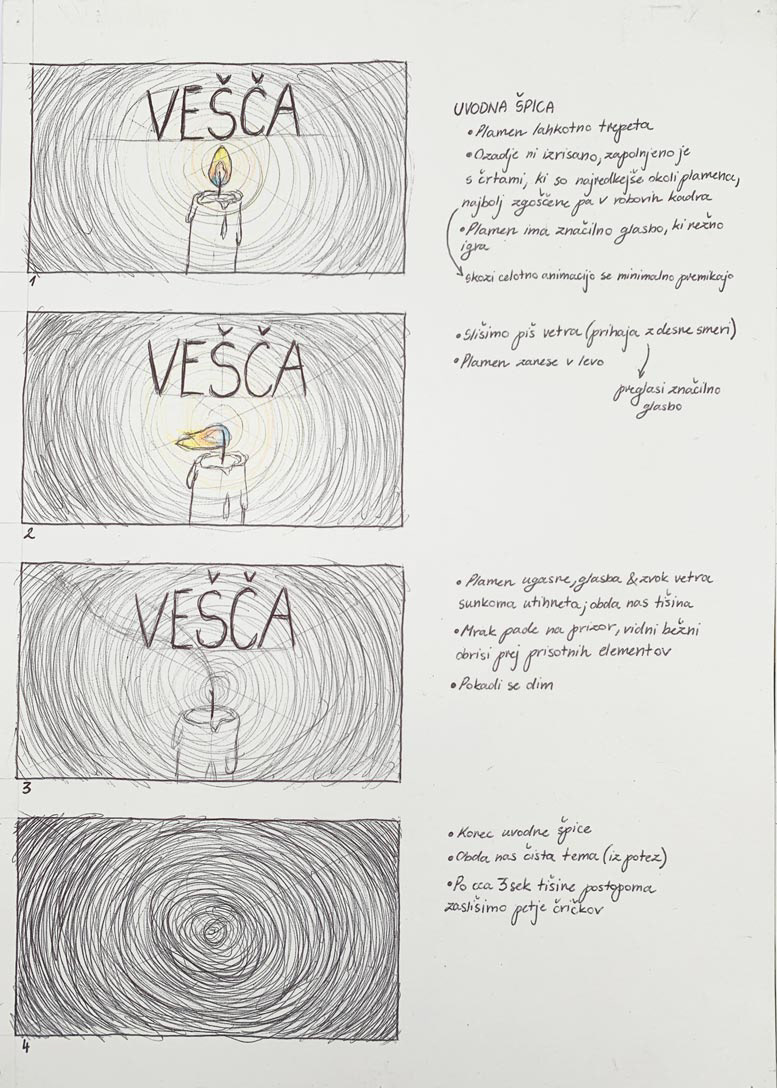 VEŠČA
1
UVODNA ŠPICA
• Plamen lahkotno trepeta
• Ozadje ni izrisano, zapolnjeno je
s črtami, ki so najredkejše okoli plamena,
najbolj zgoščene pa v robovih kadra
• Plamen ima značilno glasbo, ki nežno
igra
skozi celotno animacijo se minimalno premikajo
VEŠČA
2
• Slišimo piš vetra (prihaja z desne smeri)
• Plamen zanese v levo
preglasi značilno
glasbo
VEŠČA
3
• Plamen ugasne, glasba & zvok vetra
sunkoma utihneta; obda nas tišina
• Mrak pade na prizor, vidni bežni
obrisi prej prisotnih elementov
• Pokadi se dim
4
• Konec uvodne špice
• Obda nas čista tema (iz potez)
• Po cca 3 sek tišine postopoma
zaslišimo petje čričkov